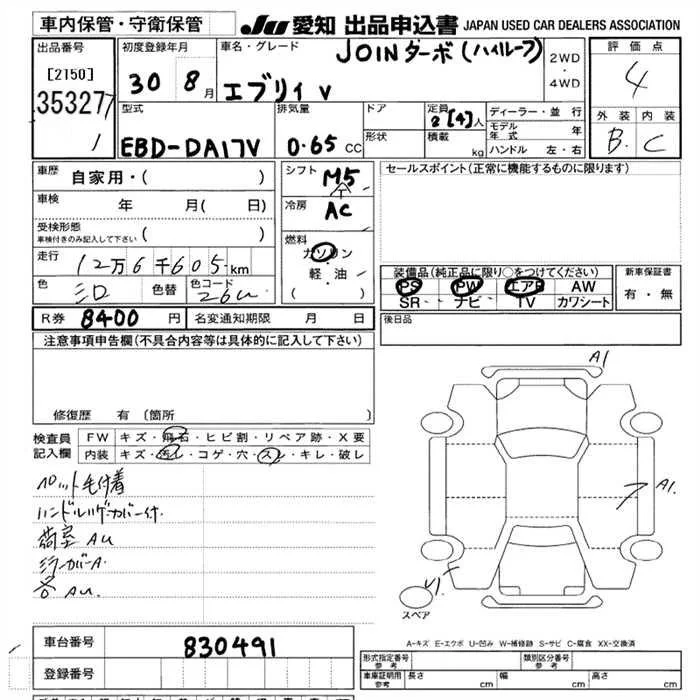 車内保管・守衛保管
JU 愛知 出品申込書 JAPAN USED CAR DEALERS ASSOCIATION
出品番号
[2150]
35327
1
初度登録年月
30 8月
車名・グレード
JOINターボ(ハイルーフ)
エブリイ V
2WD
・
4WD
評価点
4
外装 内装
B C
型式
EBD-DA17V
排気量
0.65 CC
ドア
形状
定員 2[4]人
積載 kg
ディーラー・並行
モデル年式 年
ハンドル 左・右
車歴 自家用・( )
車検 年 月( 日)
受検形態
車検付きのみ記入して下さい ( )
走行 12万6千605km
色 シロ 色替 色コード 26U
シフト M5
冷房 AC
燃料
ガソリン
軽油
( )
セールスポイント(正常に機能するものに限ります)
装備品(純正品に限り○をつけてください)
PS PW エアB AW
SR ナビ TV カワシート
新車保証書
有・無
R券 8400円 名変通知期限 月 日
後日品
注意事項申告欄(不具合内容等は具体的に記入して下さい)
修復歴 有 〔箇所 〕
検査員
記入欄
FW キズ・飛石・ヒビ割・リペア跡・X要
内装 キズ・汚レ・コゲ・穴・スレ・キレ・破レ
ペット毛付着
荷室AU
A1
A1.
スペア
A-キズ E-エクボ U-凹み W-補修跡 S-サビ C-腐食 XX-交換済
車台番号 830491
登録番号
形式指定番号
参考
類別区分番号
参考
車庫証明用
参考
長さ cm 幅 cm 高さ cm